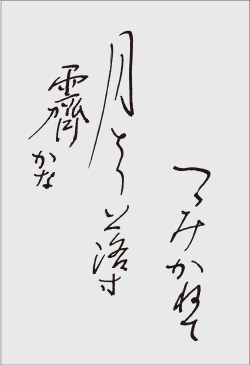 つゝみかねて
月とり落す
霽かな